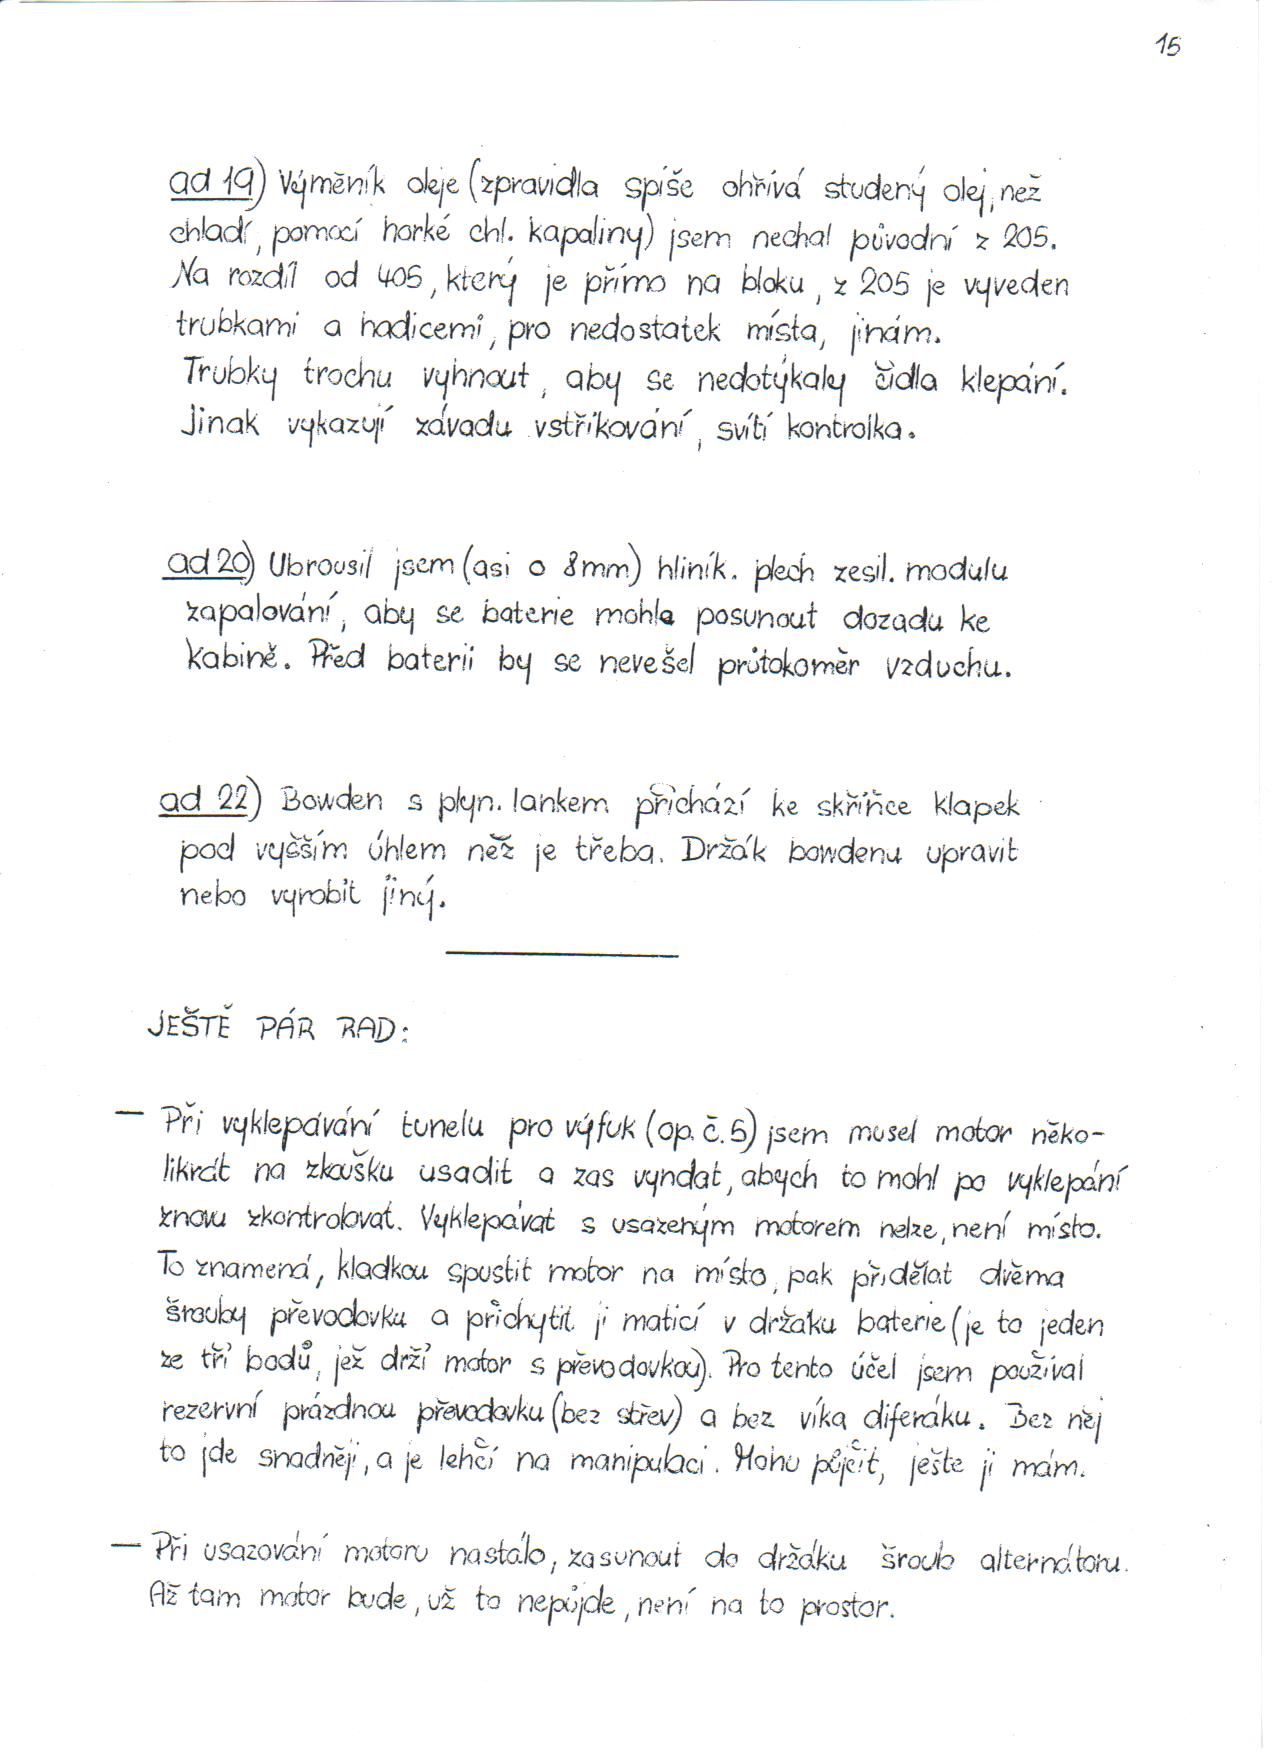 15
ad 19) Výměník oleje (zpravidla spíše ohřívá studený olej, než
chladí, pomocí horké chl. kapaliny) jsem nechal původní z 205.
Na rozdíl od 405, který je přímo na bloku, z 205 je vyveden
trubkami a hadicemi, pro nedostatek místa, jinám.
Trubky trochu vyhnout, aby se nedotýkaly čidla klepání.
Jinak vykazují závadu vstřikování, svítí kontrolka.
ad 20) Ubrousil jsem (asi o 8mm) hliník. plech zesil. modulu
zapalování, aby se baterie mohla posunout dozadu ke
kabině. Před baterii by se nevešel průtokoměr vzduchu.
ad 22) Bowden s plyn. lankem přichází ke skříňce klapek
pod vyšším úhlem než je třeba. Držák bowdenu upravit
nebo vyrobit jiný.
JEŠTĚ PÁR RAD:
— Při vyklepávání tunelu pro výfuk (op. č. 5) jsem musel motor něko-
likrát na zkoušku usadit a zas vyndat, abych to mohl po vyklepání
znovu zkontrolovat. Vyklepávat s usazeným motorem nelze, není místo.
To znamená, kladkou spustit motor na místo, pak přidělat dvěma
šrouby převodovku a přichytit ji maticí v držáku baterie (je to jeden
ze tří bodů, jež drží motor s převodovkou). Pro tento účel jsem používal
rezervní prázdnou převodovku (bez střev) a bez víka diferáku. Bez něj
to jde snadněji, a je lehčí na manipulaci. Mohu půjčit, ješte ji mám.
— Při usazování motoru nastálo, zasunout do držáku šroub alternátoru.
Až tam motor bude, už to nepůjde, není na to prostor.